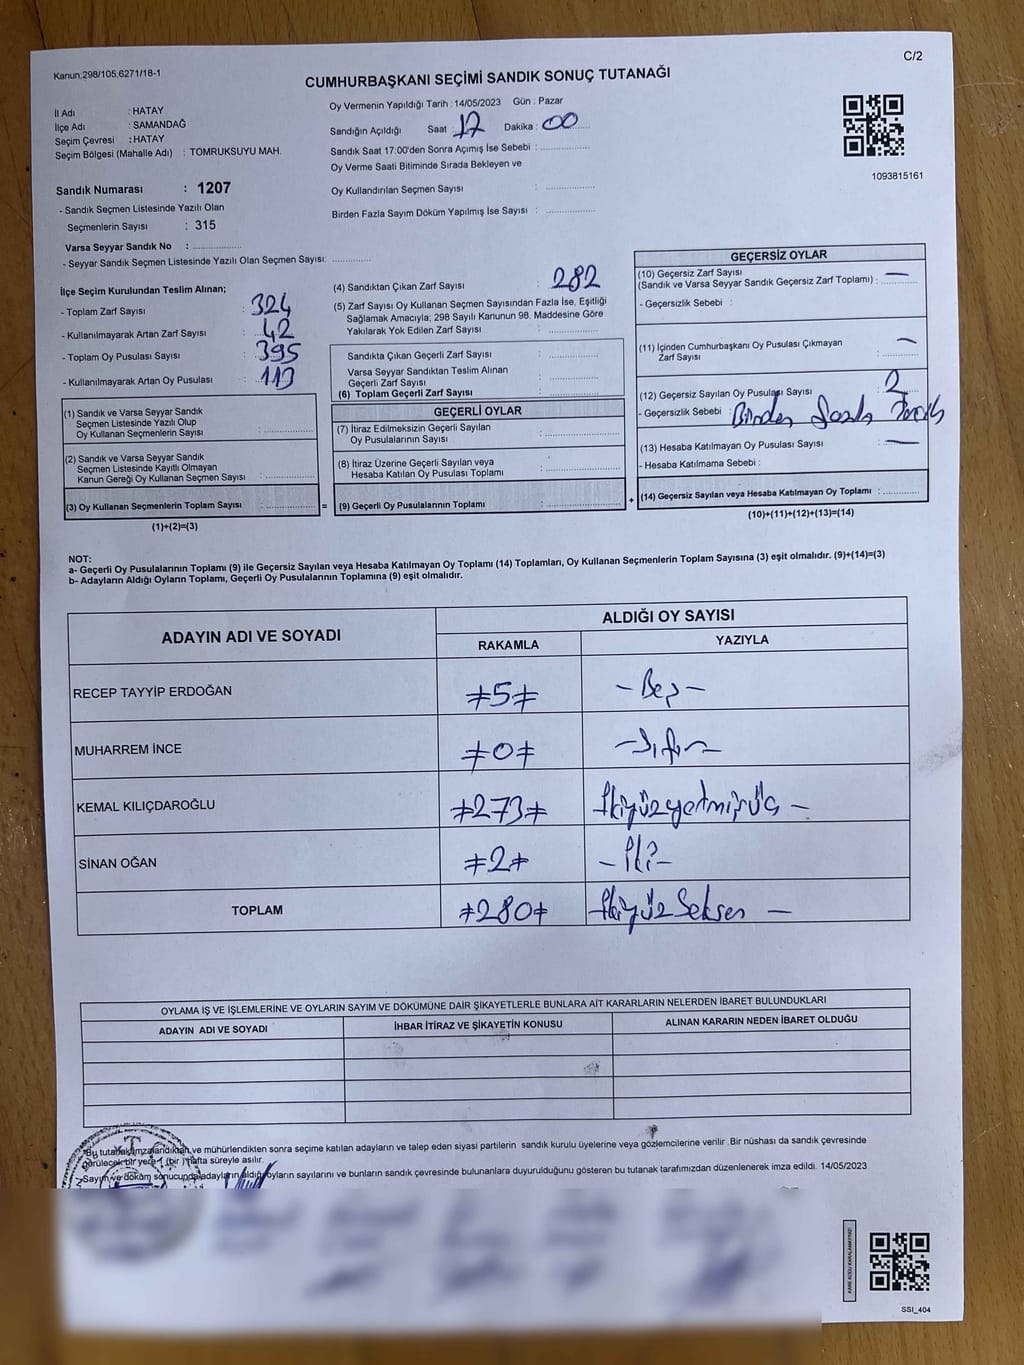 C/2
Kanun:298/105,6271/18-1
CUMHURBAŞKANI SEÇİMİ SANDIK SONUÇ TUTANAĞI
İl Adı : HATAY
İlçe Adı : SAMANDAĞ
Seçim Çevresi : HATAY
Seçim Bölgesi (Mahalle Adı) : TOMRUKSUYU MAH.
Oy Vermenin Yapıldığı Tarih : 14/05/2023 Gün : Pazar
Sandığın Açıldığı Saat : 17 Dakika : 00
Sandık Saat 17:00'den Sonra Açımış İse Sebebi :
Oy Verme Saati Bitiminde Sırada Bekleyen ve
Oy Kullandırılan Seçmen Sayısı :
Birden Fazla Sayım Döküm Yapılmış İse Sayısı :
1093815161
Sandık Numarası : 1207
- Sandık Seçmen Listesinde Yazılı Olan
Seçmenlerin Sayısı : 315
Varsa Seyyar Sandık No :
- Seyyar Sandık Seçmen Listesinde Yazılı Olan Seçmen Sayısı:
İlçe Seçim Kurulundan Teslim Alınan;
- Toplam Zarf Sayısı : 324
- Kullanılmayarak Artan Zarf Sayısı : 42
- Toplam Oy Pusulası Sayısı : 395
- Kullanılmayarak Artan Oy Pusulası : 113
(1) Sandık ve Varsa Seyyar Sandık
Seçmen Listesinde Yazılı Olup
Oy Kullanan Seçmenlerin Sayısı :
(2) Sandık ve Varsa Seyyar Sandık
Seçmen Listesinde Kayıtlı Olmayan
Kanun Gereği Oy Kullanan Seçmen Sayısı :
(3) Oy Kullanan Seçmenlerin Toplam Sayısı :
(1)+(2)=(3)
=
(4) Sandıktan Çıkan Zarf Sayısı : 282
(5) Zarf Sayısı Oy Kullanan Seçmen Sayısından Fazla İse, Eşitliği
Sağlamak Amacıyla; 298 Sayılı Kanunun 98. Maddesine Göre
Yakılarak Yok Edilen Zarf Sayısı :
Sandıkta Çıkan Geçerli Zarf Sayısı :
Varsa Seyyar Sandıktan Teslim Alınan
Geçerli Zarf Sayısı :
(6) Toplam Geçerli Zarf Sayısı :
GEÇERLİ OYLAR
(7) İtiraz Edilmeksizin Geçerli Sayılan
Oy Pusulalarının Sayısı :
(8) İtiraz Üzerine Geçerli Sayılan veya
Hesaba Katılan Oy Pusulası Toplamı :
(9) Geçerli Oy Pusulalarının Toplamı :
+
GEÇERSİZ OYLAR
(10) Geçersiz Zarf Sayısı —
(Sandık ve Varsa Seyyar Sandık Geçersiz Zarf Toplamı) :
- Geçersizlik Sebebi :
(11) İçinden Cumhurbaşkanı Oy Pusulası Çıkmayan —
Zarf Sayısı :
(12) Geçersiz Sayılan Oy Pusulası Sayısı : 2
- Geçersizlik Sebebi : Birden fazla
(13) Hesaba Katılmayan Oy Pusulası Sayısı : —
- Hesaba Katılmama Sebebi :
(14) Geçersiz Sayılan veya Hesaba Katılmayan Oy Toplamı :
(10)+(11)+(12)+(13)=(14)
NOT:
a- Geçerli Oy Pusulalarının Toplamı (9) ile Geçersiz Sayılan veya Hesaba Katılmayan Oy Toplamı (14) Toplamları, Oy Kullanan Seçmenlerin Toplam Sayısına (3) eşit olmalıdır. (9)+(14)=(3)
b- Adayların Aldığı Oyların Toplamı, Geçerli Oy Pusulalarının Toplamına (9) eşit olmalıdır.
ADAYIN ADI VE SOYADI ALDIĞI OY SAYISI
RAKAMLA YAZIYLA
RECEP TAYYİP ERDOĞAN ≠5≠ -Beş-
MUHARREM İNCE ≠0≠ -Sıfır-
KEMAL KILIÇDAROĞLU ≠273≠ İkiyüzyetmişüç -
SİNAN OĞAN ≠2≠ -İki-
TOPLAM ≠280≠ İkiyüz Seksen -
OYLAMA İŞ VE İŞLEMLERİNE VE OYLARIN SAYIM VE DÖKÜMÜNE DAİR ŞİKAYETLERLE BUNLARA AİT KARARLARIN NELERDEN İBARET BULUNDUKLARI
ADAYIN ADI VE SOYADI İHBAR İTİRAZ VE ŞİKAYETİN KONUSU ALINAN KARARIN NEDEN İBARET OLDUĞU
Bu tutanak imzalandıktan ve mühürlendikten sonra seçime katılan adayların ve talep eden siyasi partilerin sandık kurulu üyelerine veya gözlemcilerine verilir. Bir nüshası da sandık çevresinde
görülecek bir yere 1 (bir) hafta süreyle asılır.
Sayım ve döküm sonucunda adayların aldığı oyların sayılarını ve bunların sandık çevresinde bulunanlara duyurulduğunu gösteren bu tutanak tarafımızdan düzenlenerek imza edildi. 14/05/2023
KARE KODU KARALAMAYINIZ!
SSI_404